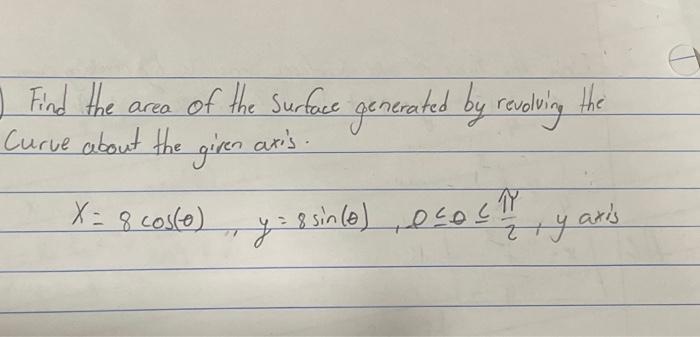 ) Find the area of the surface generated by revolving the
Curve about the given axis.
X = 8 cos(θ) , y = 8 sin(θ) , 0 ≤ θ ≤ π/2 , y axis